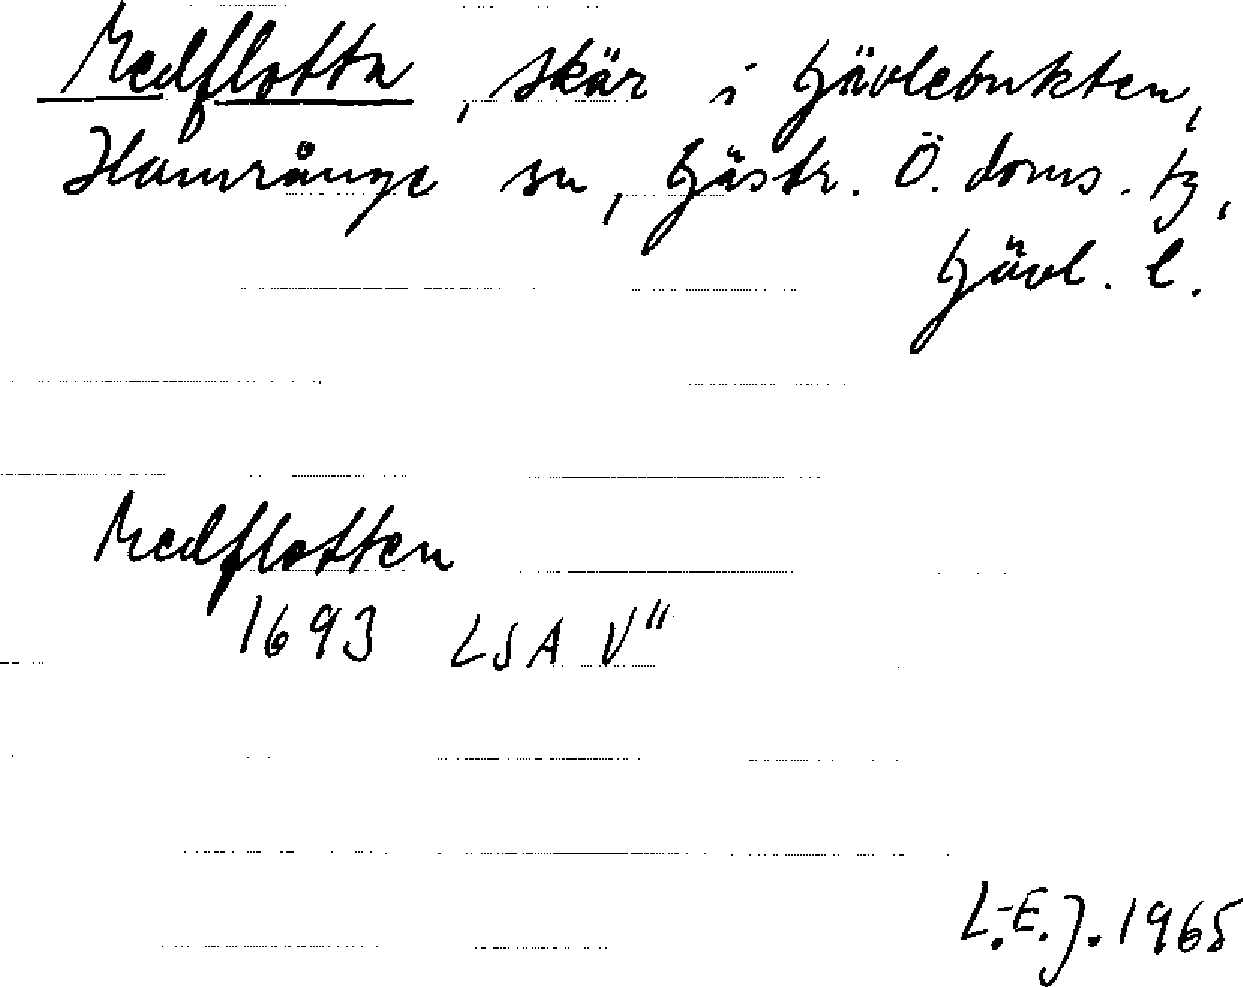 Medflotta, skär i Gävlebukten,
Hamrånge sn, Gästr. Ö. doms. tg,
Gävl. l.
Medflotten
1693 LSA V"
L.-E.J. 1965